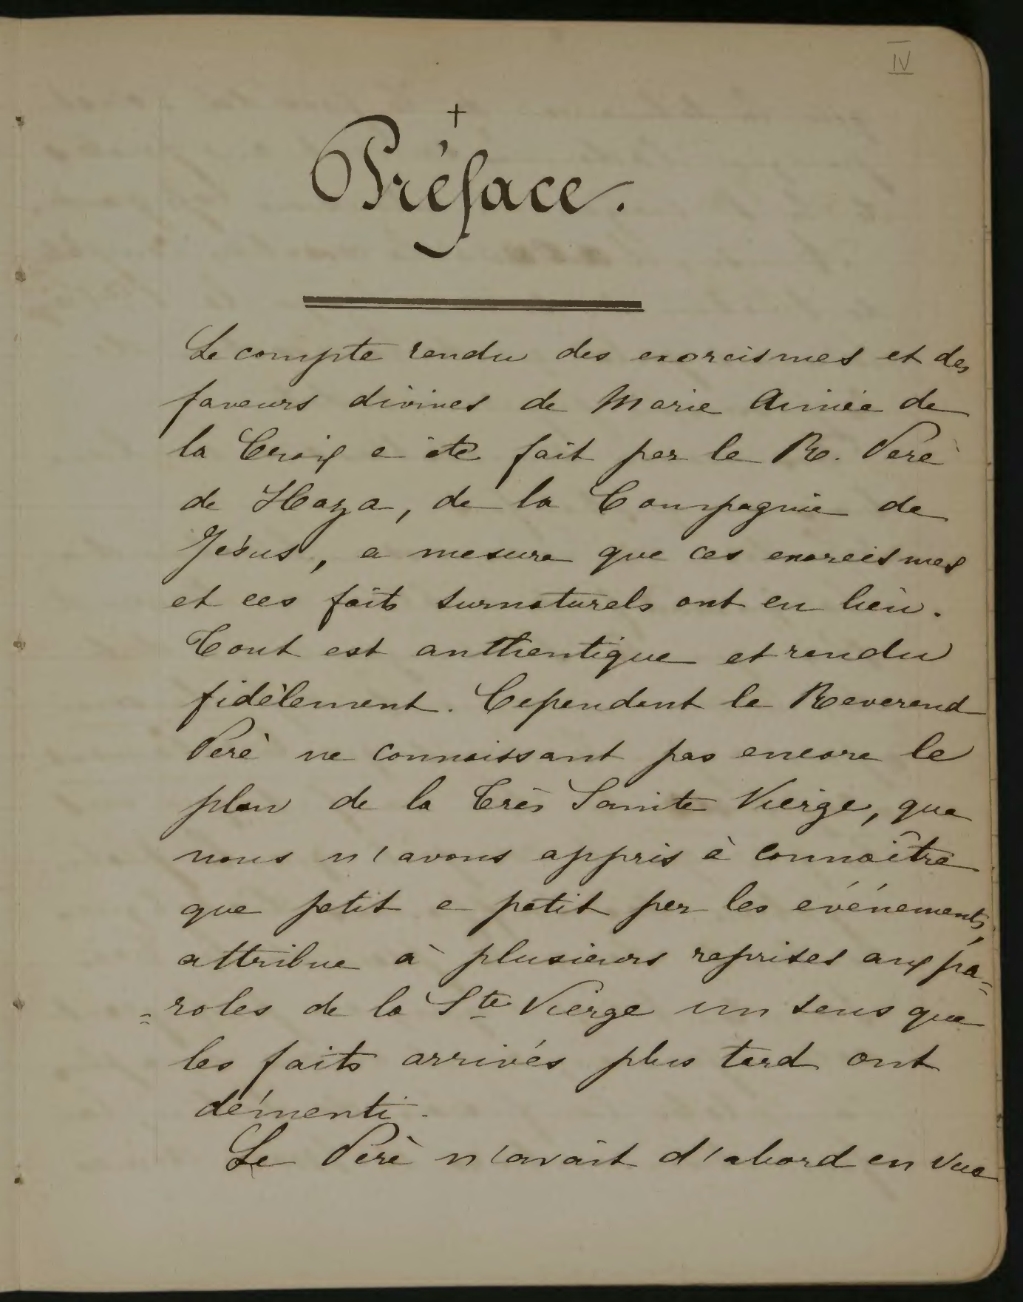 IV
+
Préface.
Le compte rendu des exorcismes et des
faveurs divines de Marie Aimée de
la Croix a été fait par le R. Père
de Haza, de la Compagnie de
Jésus, a mesure que ces exorcismes
et ces faits surnaturels ont eu lieu.
Tout est authentique et rendu
fidèlement. Cependant le Reverend
Père ne connaissant pas encore le
plan de la Très Sainte Vierge, que
nous n'avons appris à connaître
que petit a petit par les événements,
attribue à plusieurs reprises aux pa=
=roles de la Ste Vierge un sens que
les faits arrivés plus tard ont
démenti.
Le Père n'avait d'abord en vue